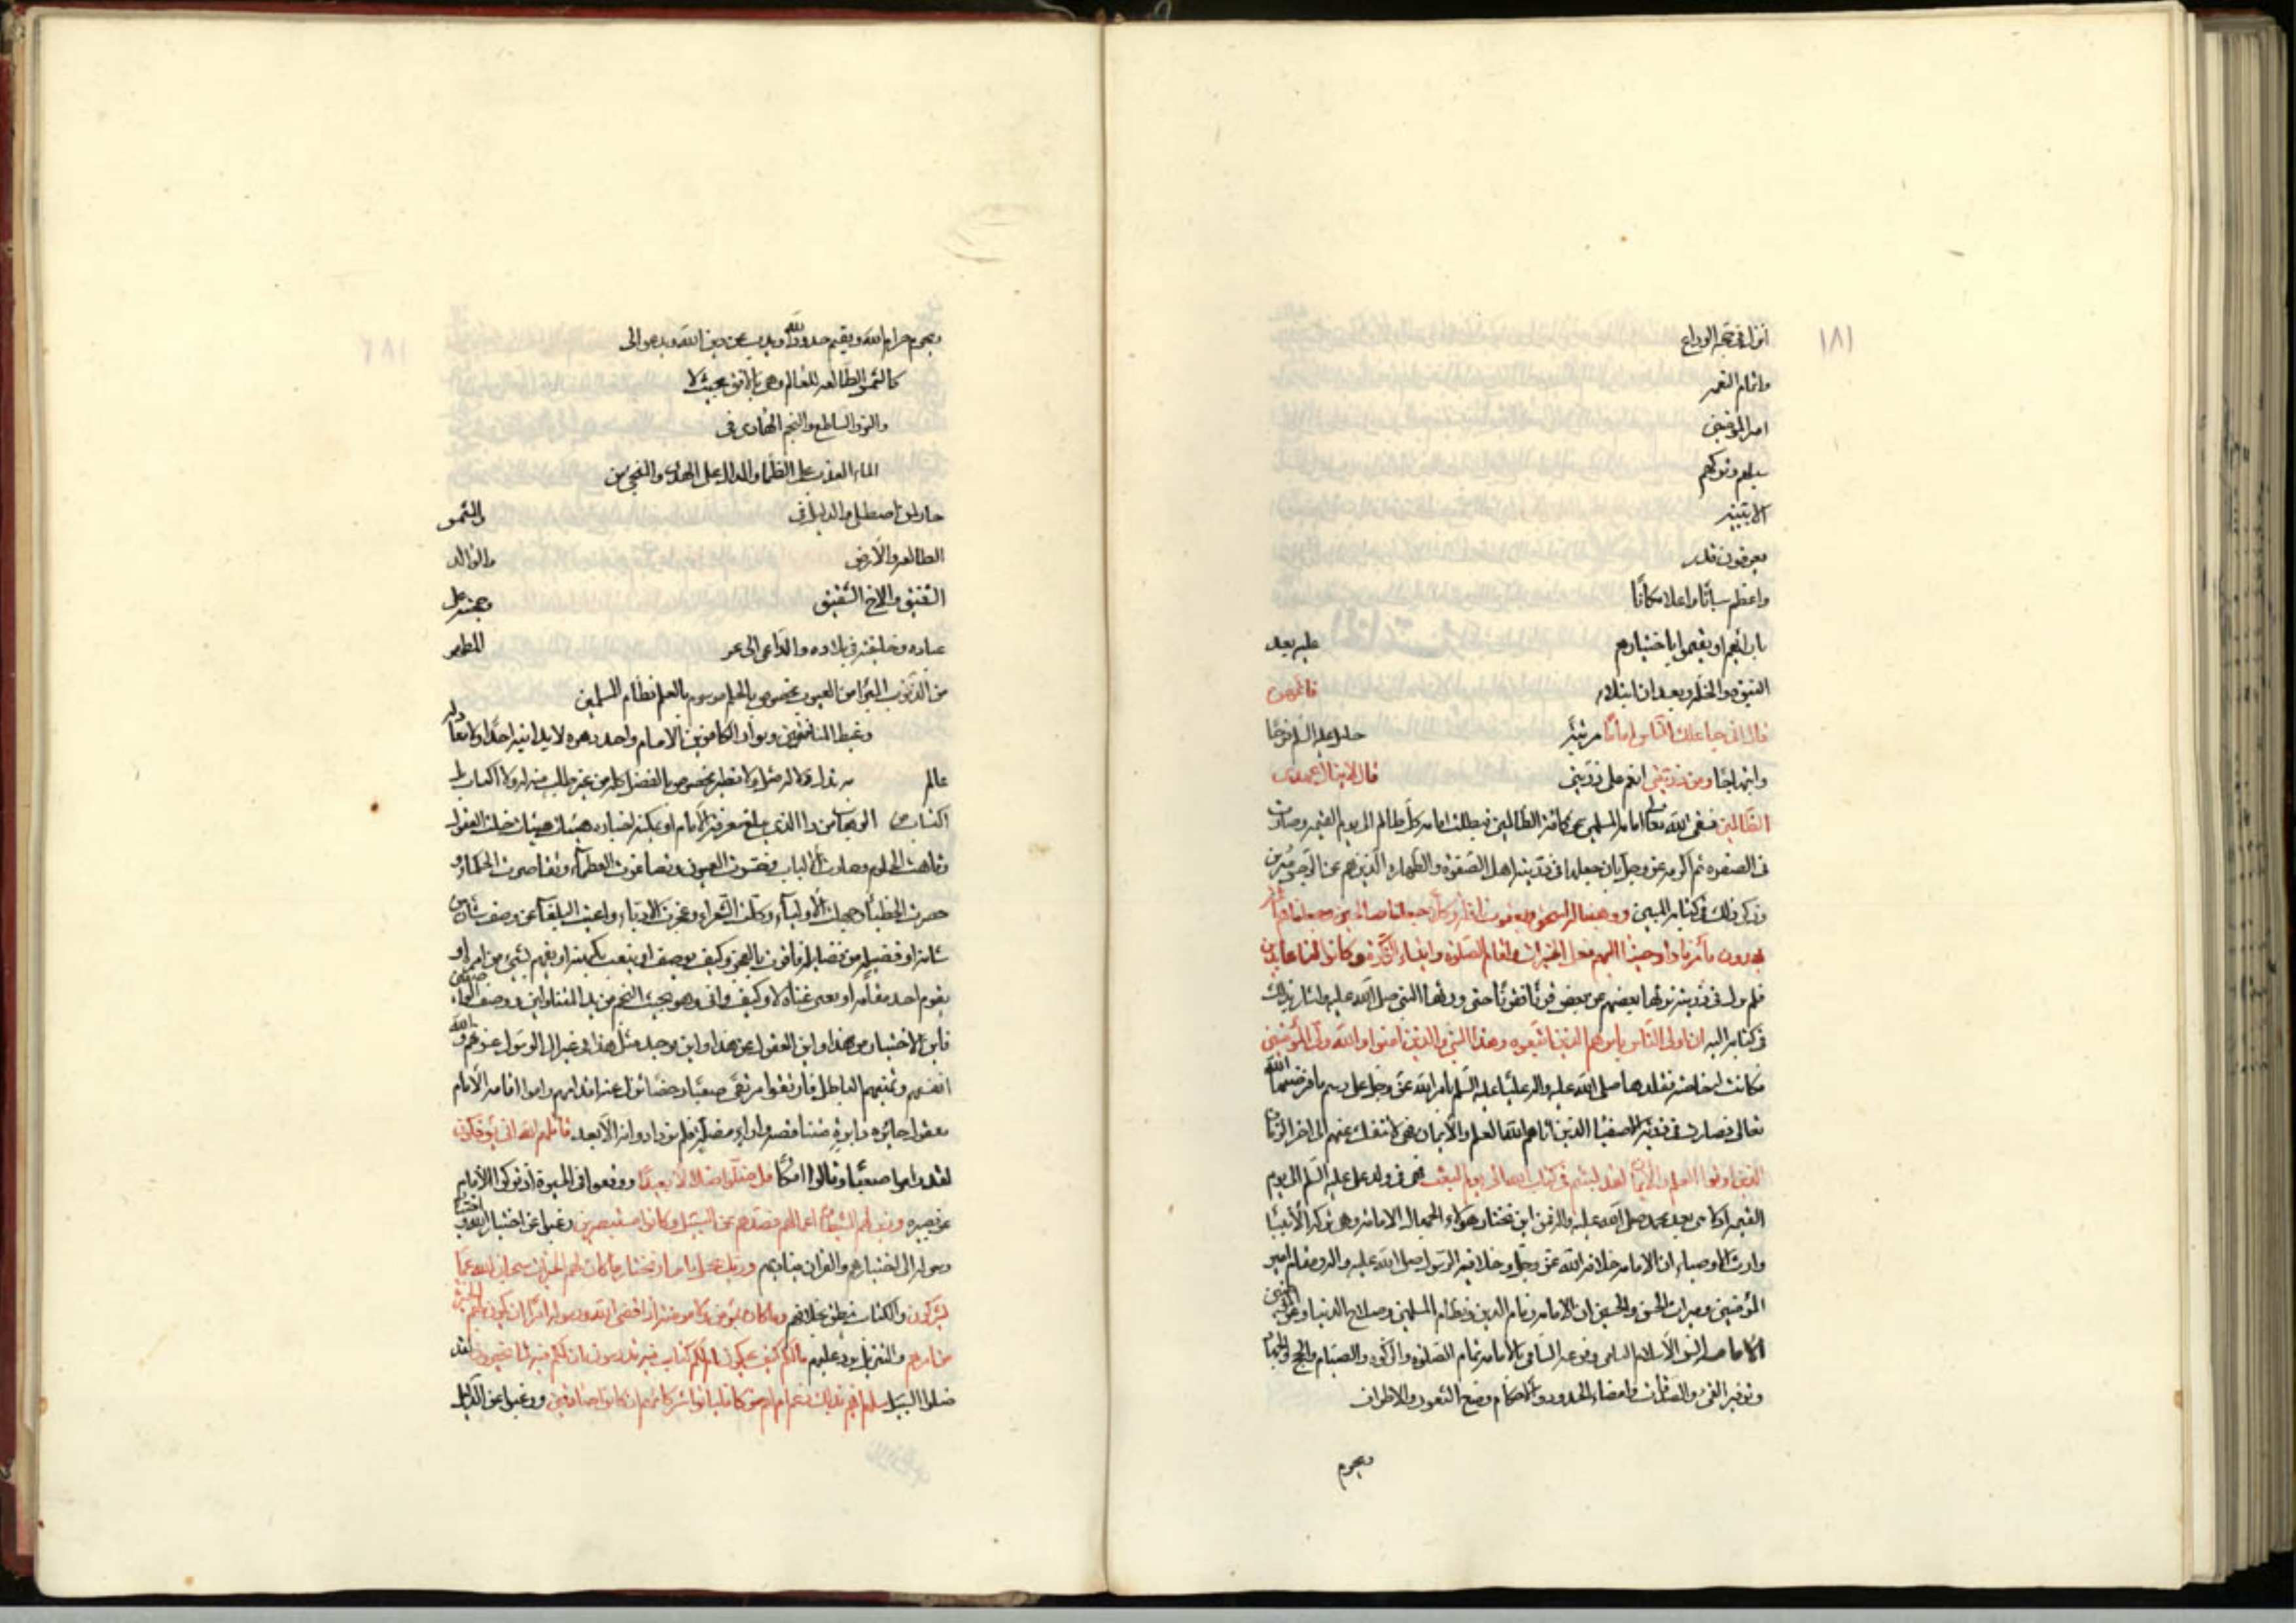 ١٨١
انزل في حجة الوداع
واتمام النعمه
امر المؤمنين
سبلهم وتركهم
الا بتبيينه
يعرفون قدر
واعظم شأنًا واعلا مكانًا
بارائهم او يقيموا باختيارهم عليه بعد
النبوة والخلة وبعد ان ابتلاه فاتمهن
قال اني جاعلك للناس امامًا
وابتهاجًا ومن ذريتي اي من ذريتي قال لا ينال عهدي
الظالمين فنفى الله تعالى امامة المسلمين عن كافة الظالمين فبطلت امامة كل ظالم الى يوم القيمه وصارت
في الصفوه ثم اكرمه عز وجل بان جعلها في ذريته اهل الصفوة والطهاره الذين هم عن الرجس
وذكر ذلك في كتابه المبين ووهبنا له اسحق ويعقوب نافلة وكلًا جعلنا صالحين وجعلناهم ائمة
يهدون بأمرنا واوحينا اليهم فعل الخيرات واقام الصلوة وايتاء الزكوة وكانوا لنا عابدين
فلم يزل في ذريته يرثها بعضهم عن بعض قرنًا فقرنًا حتى ورثها النبي صلى الله عليه واله
في كتابه اليه ان اولى الناس بابرهيم للذين اتبعوه وهذا النبي والذين امنوا والله ولي المؤمنين
فكانت له خاصة فقلدها صلى الله عليه واله عليًا عليه السلم بامر الله عز وجل على رسم ما فرضها الله
تعالى فصارت في ذريته الاصفياء الذين اتاهم الله العلم والايمان فهي لا تنفك عنهم الى اخر الزمان
الذين اوتوا العلم والايمان لقد لبثتم في كتاب الله الى يوم البعث فهي في ولد علي عليه السلم الى يوم
القيمه اذ لا نبي بعد محمد صلى الله عليه واله فمن اين تختار هؤلاء الجهال الامامة وهي منزلة الانبياء
وارث الاوصياء ان الامامه خلافة الله عز وجل وخلافة الرسول صلى الله عليه واله ومقام امير
المؤمنين وميراث الحسن والحسين ان الامامه زمام الدين ونظام المسلمين وصلاح الدنيا وعز المؤمنين
الامامه اس الاسلام النامي وفرعه السامي بالامامه تمام الصلوة والزكوة والصيام والحج والجهاد
وتوفير الفيء والصدقات وامضاء الحدود والاحكام ومنع الثغور والاطراف
ويحرم
ويحرم حرام الله ويقيم حدود الله ويذب عن دين الله ويدعو الى
كالشمس الطالعه للعالم وهي بالافق بحيث لا
والنور الساطع والنجم الهادي في
الماء العذب على الظماء والدال على الهدى والمنجي من
حار لمن اصطلى والدليل في والشمس
الطالعه والارض والوالد
الشفيق والاخ الشقيق وحجته على
عباده وخليفته في بلاده والداعي الى المطهر
من الذنوب المبرا من العيوب مخصوص بالعلم موسوم بالحلم نظام المسلمين
وغيظ المنافقين وبوار الكافرين الامام واحد دهره لا يدانيه احد ولا يعادله
عالم بدل ولا له مثل ولا نظير مخصوص بالفضل كله من غير طلب منه له ولا اكتساب
اكتساب من الوهاب فمن ذا الذي يبلغ معرفة الامام او يمكنه اختياره هيهات هيهات ضلت العقول
وتاهت الحلوم وحارت الالباب وحسرت العيون وتصاغرت العظماء وتقاصرت الحكماء و
حصرت الخطباء وجهلت الالباء وكلت الشعراء وعجزت الادباء واعيت البلغاء عن وصف شان من
شانه او فضيلة من فضايله فاقرت بالعجز وكيف يوصف او ينعت بكنهه او يفهم شيء من امره او
يقوم احد مقامه او يغني غناه لا وكيف وانى وهو بحيث النجم من يد المتناولين ووصف الواصفين
فاين الاختيار من هذا واين العقول عن هذا واين يوجد مثل هذا في غير ال الرسول غرتهم والله
انفسهم ومنتهم الباطل فارتقوا مرتقى صعبًا دحضًا تزل عنه اقدامهم راموا اقامة الامام
بعقول جائره بايرة متناقصه واراء مضلة فلم يزدادوا منه الا بعدا قاتلهم الله انى يؤفكون
لقد راموا صعبًا وقالوا افكًا وضلوا ضلالًا بعيدًا ووقعوا في الحيرة اذ تركوا الامام
عن بصيره وزين لهم الشيطان اعمالهم فصدهم عن السبيل وكانوا مستبصرين رغبوا عن اختيار الله واختيار
رسوله الى اختيارهم والقران يناديهم وربك يخلق ما يشاء ويختار ما كان لهم الخيرة سبحان الله عما
يشركون والكتاب ينطق وما كان لمؤمن ولا مؤمنة اذا قضى الله ورسوله امرًا ان يكون لهم الخيرة
من امرهم مالكم كيف تحكمون ام لكم كتاب فيه تدرسون ان لكم فيه لما تخيرون
ضلوا السبيل سلهم ايهم بذلك زعيم ام لهم شركاء فليأتوا بشركائهم ان كانوا صادقين ورغبوا عن الدليل